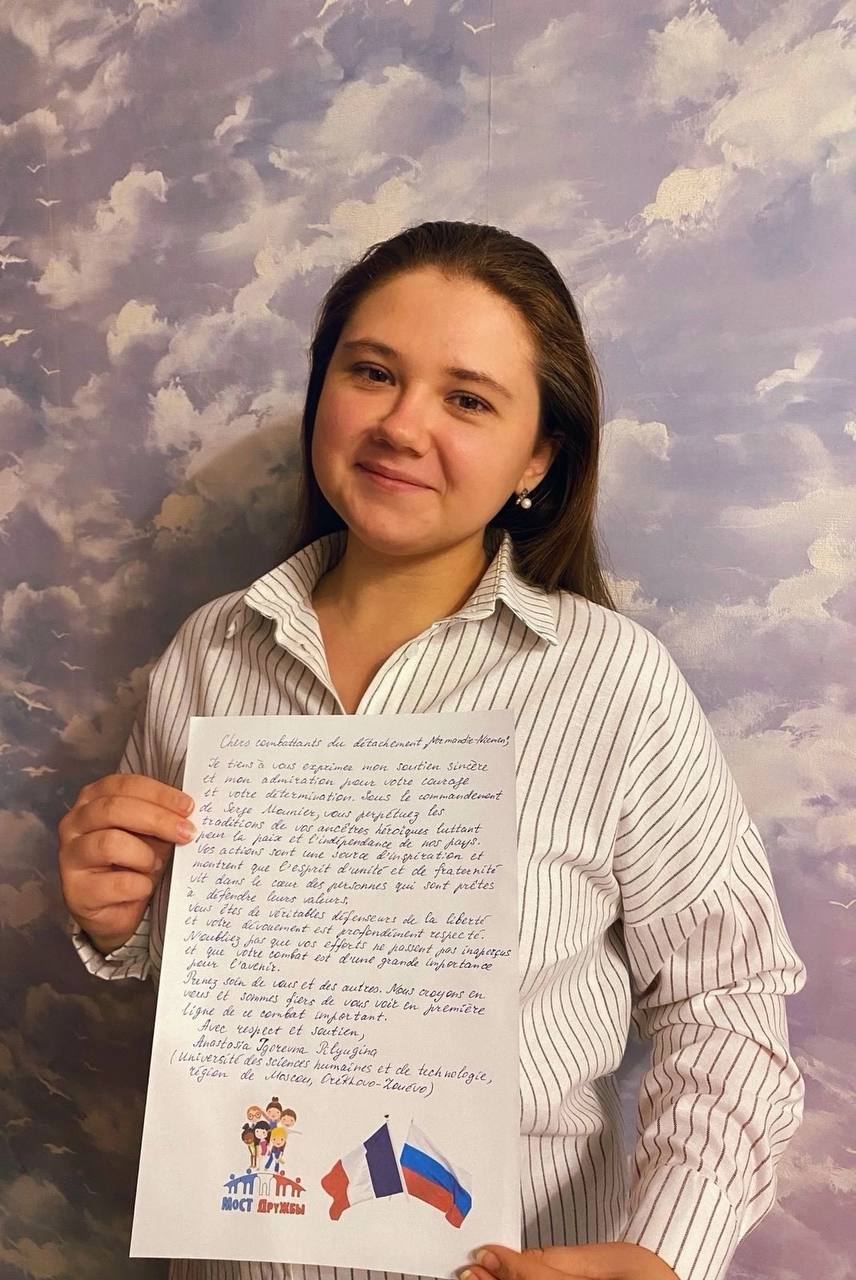 Chers combattants du détachement „Normandie-Niemen",
Je tiens à vous exprimer mon soutien sincère
et mon admiration pour votre courage
et votre détermination. Sous le commandement
de Serge Mounier, vous perpétuez les
traditions de vos ancêtres héroïques luttant
pour la paix et l'indépendance de nos pays.
Vos actions sont une source d'inspiration et
montrent que l'esprit d'unité et de fraternité
vit dans le cœur des personnes qui sont prêtes
à défendre leurs valeurs.
Vous êtes de véritables défenseurs de la liberté
et votre dévouement est profondément respecté.
N'oubliez pas que vos efforts ne passent pas inaperçus
et que votre combat est d'une grande importance
pour l'avenir.
Prenez soin de vous et des autres. Nous croyons en
vous et sommes fiers de vous voir en première
ligne de ce combat important.
Avec respect et soutien,
Anastasia Igorevna Pilyugina
(Université des sciences humaines et de technologie,
région de Moscou, Orekhovo-Zouévo)
МОСТ ДРУЖБЫ